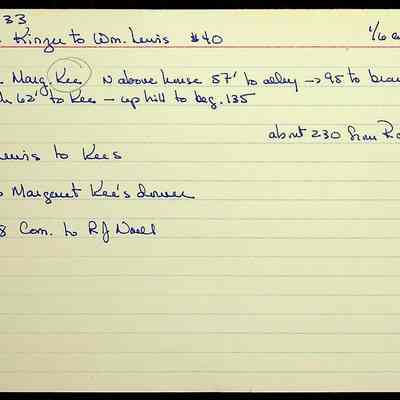 33
Kinzer to Wm. Lewis $40 1/6 a
Marg. Kees N above house 57' to alley → 95 to bran
62' to Kee — up hill to beg. 135
about 230 from R
ewis to Kees
Margaret Kee's dower
8 Com. to R J Noell